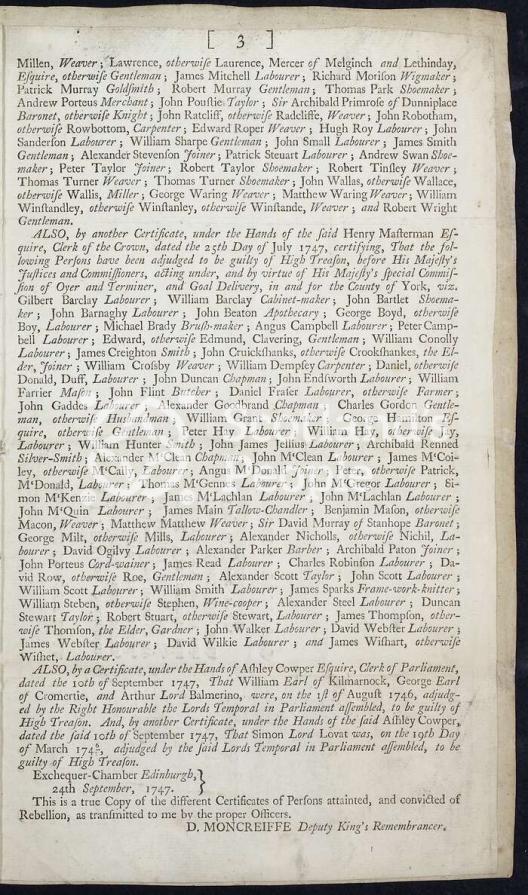 [ 3 ]
Millen, Weaver; Lawrence, otherwiſe Laurence, Mercer of Melginch and Lethinday,
Eſquire, otherwiſe Gentleman; James Mitchell Labourer; Richard Moriſon Wigmaker;
Patrick Murray Goldſmith; Robert Murray Gentleman; Thomas Park Shoemaker;
Andrew Porteus Merchant; John Pouſtie Taylor; Sir Archibald Primroſe of Dunniplace
Baronet, otherwiſe Knight; John Ratcliff, otherwiſe Radcliffe, Weaver; John Robotham,
otherwiſe Rowbottom, Carpenter; Edward Roper Weaver; Hugh Roy Labourer; John
Sanderſon Labourer; William Sharpe Gentleman; John Small Labourer; James Smith
Gentleman; Alexander Stevenſon Joiner; Patrick Steuart Labourer; Andrew Swan Shoe-
maker; Peter Taylor Joiner; Robert Taylor Shoemaker; Robert Tinſley Weaver;
Thomas Turner Weaver; Thomas Turner Shoemaker; John Wallas, otherwiſe Wallace,
otherwiſe Wallis, Miller; George Waring Weaver; Matthew Waring Weaver; William
Winſtandley, otherwiſe Winſtanley, otherwiſe Winſtande, Weaver; and Robert Wright
Gentleman.
ALSO, by another Certificate, under the Hands of the ſaid Henry Maſterman Eſ-
quire, Clerk of the Crown, dated the 25th Day of July 1747, certifying, That the fol-
lowing Perſons have been adjudged to be guilty of High Treaſon, before His Majeſty's
Juſtices and Commiſſioners, acting under, and by virtue of His Majeſty's ſpecial Commiſ-
ſion of Oyer and Terminer, and Goal Delivery, in and for the County of York, viz.
Gilbert Barclay Labourer; William Barclay Cabinet-maker; John Bartlet Shoema-
ker; John Barnaghy Labourer; John Beaton Apothecary; George Boyd, otherwiſe
Boy, Labourer; Michael Brady Bruſh-maker; Angus Campbell Labourer; Peter Camp-
bell Labourer; Edward, otherwiſe Edmund, Clavering, Gentleman; William Conolly
Labourer; James Creighton Smith; John Cruickſhanks, otherwiſe Crookſhankes, the El-
der, Joiner; William Croſby Weaver; William Dempſey Carpenter; Daniel, otherwiſe
Donald, Duff, Labourer; John Duncan Chapman; John Endſworth Labourer; William
Farrier Maſon; John Flint Butcher; Daniel Fraſer Labourer, otherwiſe Farmer;
John Gaddes Labourer; Alexander Goodbrand Chapman; Charles Gordon Gentle-
man, otherwiſe Huſbandman; William Grant Shoemaker; George Hamilton Eſ-
quire, otherwiſe Gentleman; Peter Hay Labourer; William Hay, otherwiſe Hy,
Labourer; William Hunter Smith; John James Jellius Labourer; Archibald Renned
Silver-Smith; Alexander M'Clean Chapman; John M'Clean Labourer; James M'Coi-
ley, otherwiſe M'Cally, Labourer; Angus M'Donald Joiner; Peter, otherwiſe Patrick,
M'Donald, Labourer; Thomas M'Gennes Labourer; John M'Gregor Labourer; Si-
mon M'Kenzie Labourer; James M'Lachlan Labourer; John M'Lachlan Labourer;
John M'Quin Labourer; James Main Tallow-Chandler; Benjamin Maſon, otherwiſe
Macon, Weaver; Matthew Matthew Weaver; Sir David Murray of Stanhope Baronet;
George Milt, otherwiſe Mills, Labourer; Alexander Nicholls, otherwiſe Nichil, La-
bourer; David Ogilvy Labourer; Alexander Parker Barber; Archibald Paton Joiner;
John Porteus Cord-wainer; James Read Labourer; Charles Robinſon Labourer; Da-
vid Row, otherwiſe Roe, Gentleman; Alexander Scott Taylor; John Scott Labourer;
William Scott Labourer; William Smith Labourer; James Sparks Frame-work-knitter;
William Steben, otherwiſe Stephen, Wine-cooper; Alexander Steel Labourer; Duncan
Stewart Taylor; Robert Stuart, otherwiſe Stewart, Labourer; James Thompſon, other-
wiſe Thomſon, the Elder, Gardner; John Walker Labourer; David Webſter Labourer;
James Webſter Labourer; David Wilkie Labourer; and James Wiſhart, otherwiſe
Wiſhet, Labourer.
ALSO, by a Certificate, under the Hands of Aſhley Cowper Eſquire, Clerk of Parliament,
dated the 10th of September 1747, That William Earl of Kilmarnock, George Earl
of Cromertie, and Arthur Lord Balmerino, were, on the 1ſt of Auguſt 1746, adjudg-
ed by the Right Honourable the Lords Temporal in Parliament aſſembled, to be guilty of
High Treaſon. And, by another Certificate, under the Hands of the ſaid Aſhley Cowper,
dated the ſaid 10th of September 1747, That Simon Lord Lovat was, on the 19th Day
of March 174⁶⁄₇, adjudged by the ſaid Lords Temporal in Parliament aſſembled, to be
guilty of High Treaſon.
Exchequer-Chamber Edinburgh, }
24th September, 1747.
This is a true Copy of the different Certificates of Perſons attainted, and convicted of
Rebellion, as tranſmitted to me by the proper Officers.
D. MONCREIFFE Deputy King's Remembrancer.